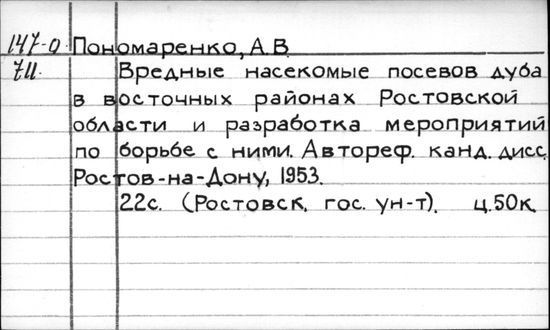 147-0 Пономаренко, А.В.
7Ц. Вредные насекомые посевов дуба
в восточных районах Ростовской
области и разработка мероприятий
по борьбе с ними. Автореф. канд. дисс.
Ростов-на-Дону, 1953.
22с. (Ростовск. гос. ун-т). ц.50к.